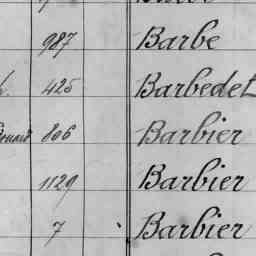 987 Barbe
425 Barbedet
806 Barbier
1129 Barbier
7 Barbier